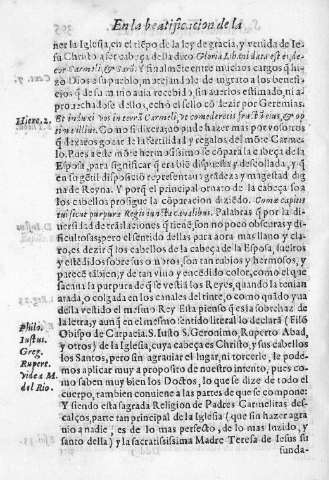 En la beatificacion de la
ner la Iglesia, en el tiẽpo de la ley de gracia, y venida de Ie-
su Christo a ser cabeça della dixo Gloria Libani data est ei, de-
cor Carmeli, & Saron. Y finalmẽte entre muchos cargos q̃ hi-
zo Dios a su pueblo, motejandole de ingrato a los benefi-
cios q̃ de su mano auia recebido, sin auerlos estimado, ni a-
prouechadose dellos, echò el sello cõ dezir por Geremias.
Hiere. 2.
Et induxi vos in terrã Carmeli, vt comederetis fructũ eius, & op
tima illius. Como si dixera; no pude hazer mas por vosotros
q̃ dexaros gozar de la fertilidad y regalos del mõte Carme-
lo. Pues a este mõte hermosissimo se cõpara la cabeça de la
Esposa, para significar q̃ era biẽ dispuesta y descollada, y q̃
en su gẽtil disposiciõ representaua grãdeza y magestad dig
na de Reyna. Y porq̃ el principal ornato de la cabeça son
los cabellos prosigue la cõparacion diziẽdo. Comæ capitis
tui sicut purpura Regis iuncta canalibus. Palabras q̃ por la di-
uersidad de traslaciones q̃ tiene, son no poco obscuras y di-
ficultosas; pero el sentido dellas para aora mas llano y cla-
ro, es dezir q̃ los cabellos de la cabeça de la Esposa, sueltos
y estẽdidos sobre sus ombros, son tan rubios y hermosos, y
parecẽ tãbien, y de tan viuo y encẽdido color, como el que
sacaua la purpura de q̃ se vestiã los Reyes, quando la tenian
atada, o colgada en los canales del tinte, o como quãdo yua
della vestido el mesmo Rey. Esta pienso q̃ es la sobrehaz de
la letra, y aunq̃ en el mesmo sentido literal lo declarã (Filõ
Philo.
Iustus.
Greg.
Rupert.
vide a M.
del Rio.
Obispo de Carpacia. S. Iusto S. Geronimo, Ruperto Abad,
y otros) de la Iglesia, cuya cabeça es Christo, y sus cabellos
los Santos, pero sin agrauiar el lugar, ni torcerle, le pode-
mos aplicar muy a proposito de nuestro intento, pues co-
mo saben muy bien los Doctos, lo que se dize de todo el
cuerpo, tambien conuiene a las partes de que se compone:
Y siendo esta sagrada Religion de Padres Carmelitas des-
calços, parte tan principal de la Iglesia (que sin hazer agra
uio a nadie, es de lo mas perfecto, de lo mas luzido, y
santo della) y la sacratissima Madre Teresa de Iesus su
funda-